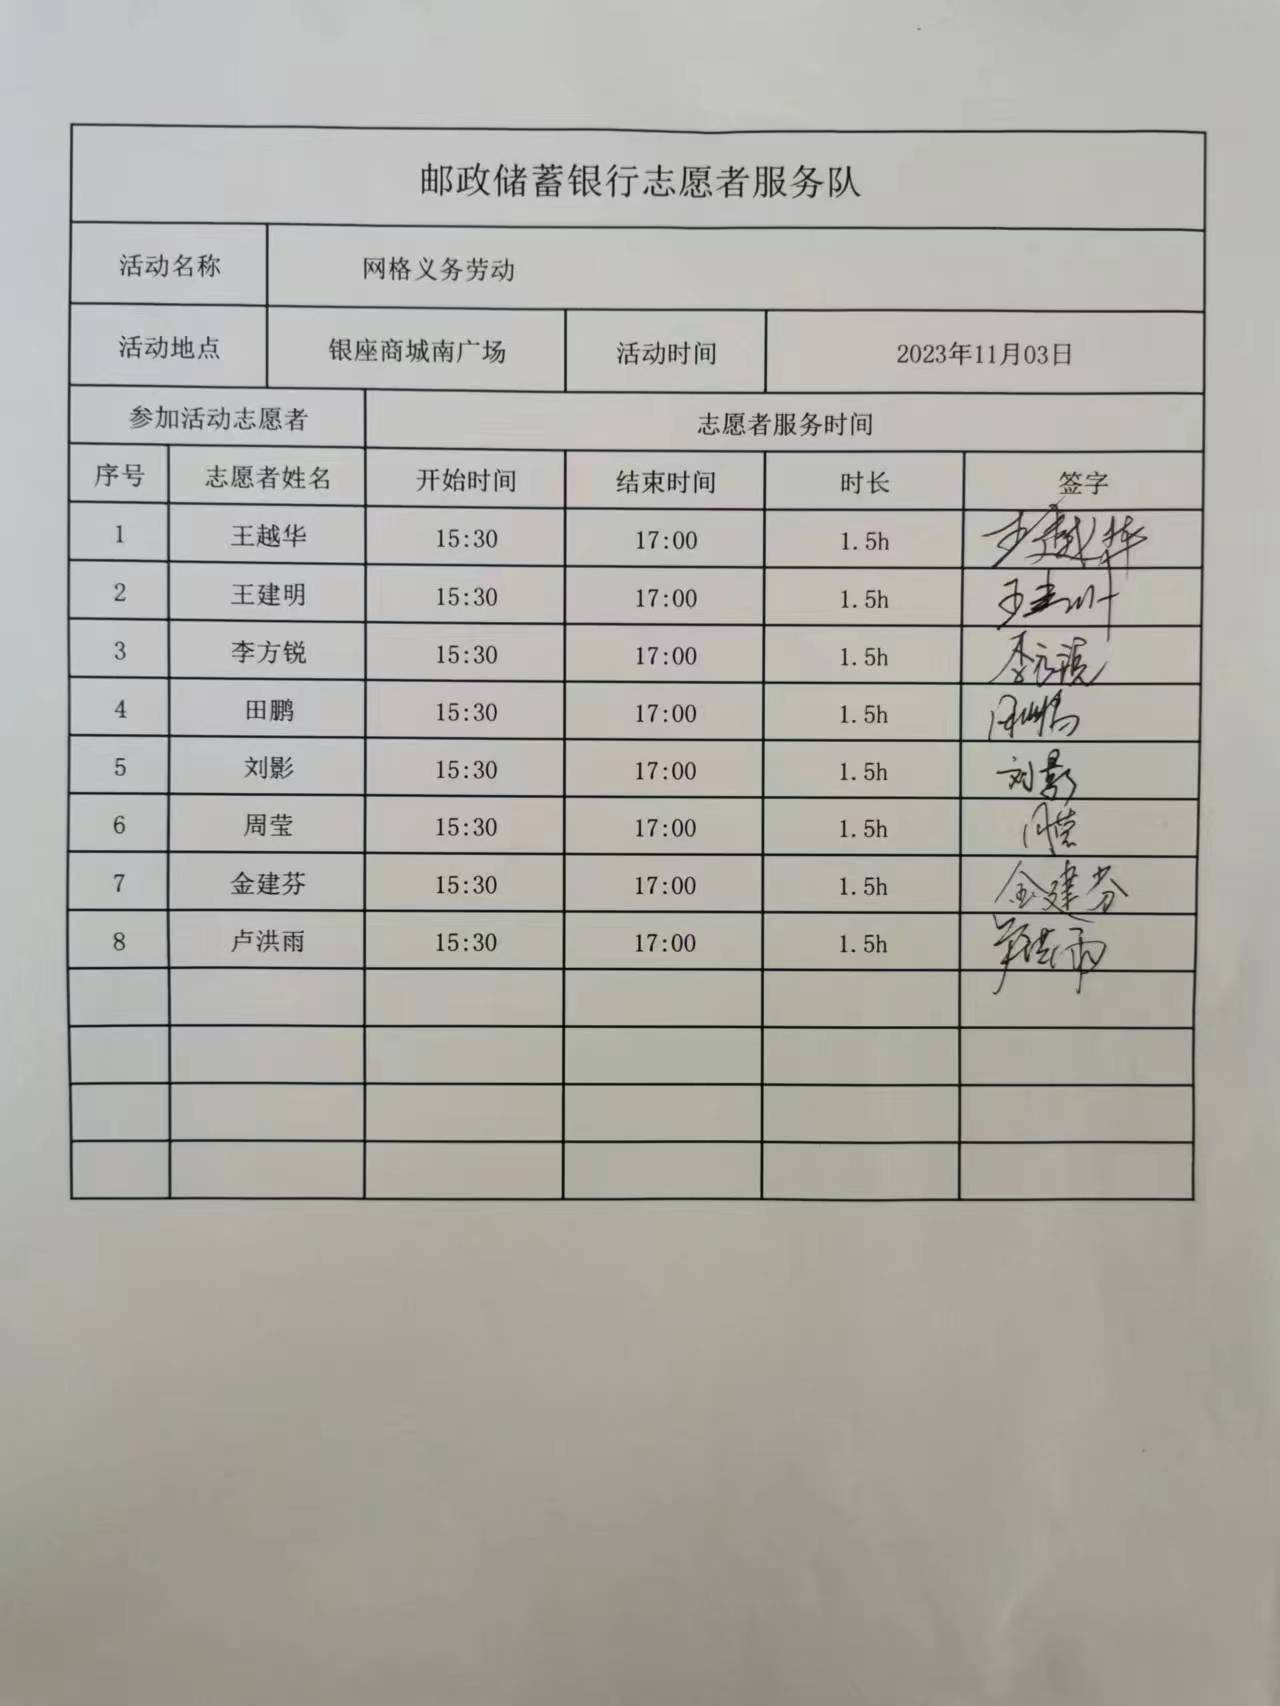 邮政储蓄银行志愿者服务队
活动名称 网格义务劳动
活动地点 银座商城南广场 活动时间 2023年11月03日
参加活动志愿者 志愿者服务时间
序号 志愿者姓名 开始时间 结束时间 时长 签字
1 王越华 15:30 17:00 1.5h 王越华
2 王建明 15:30 17:00 1.5h
3 李方锐 15:30 17:00 1.5h 李方锐
4 田鹏 15:30 17:00 1.5h 田鹏
5 刘影 15:30 17:00 1.5h 刘影
6 周莹 15:30 17:00 1.5h 周莹
7 金建芬 15:30 17:00 1.5h 金建芬
8 卢洪雨 15:30 17:00 1.5h